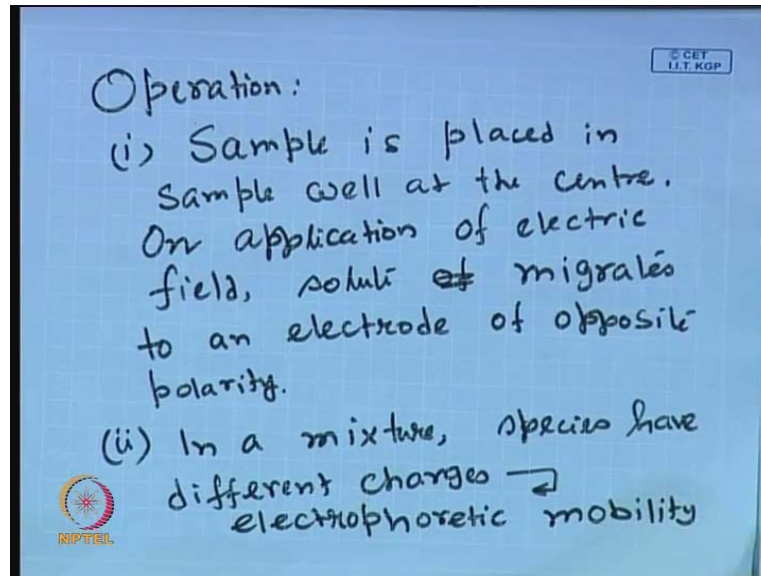 © CET
I.I.T. KGP
Operation:
(i) Sample is placed in
sample well at the centre.
On application of electric
field, solute migrates
to an electrode of opposite
polarity.
(ii) In a mixture, species have
different charges →
electrophoretic mobility
NPTEL